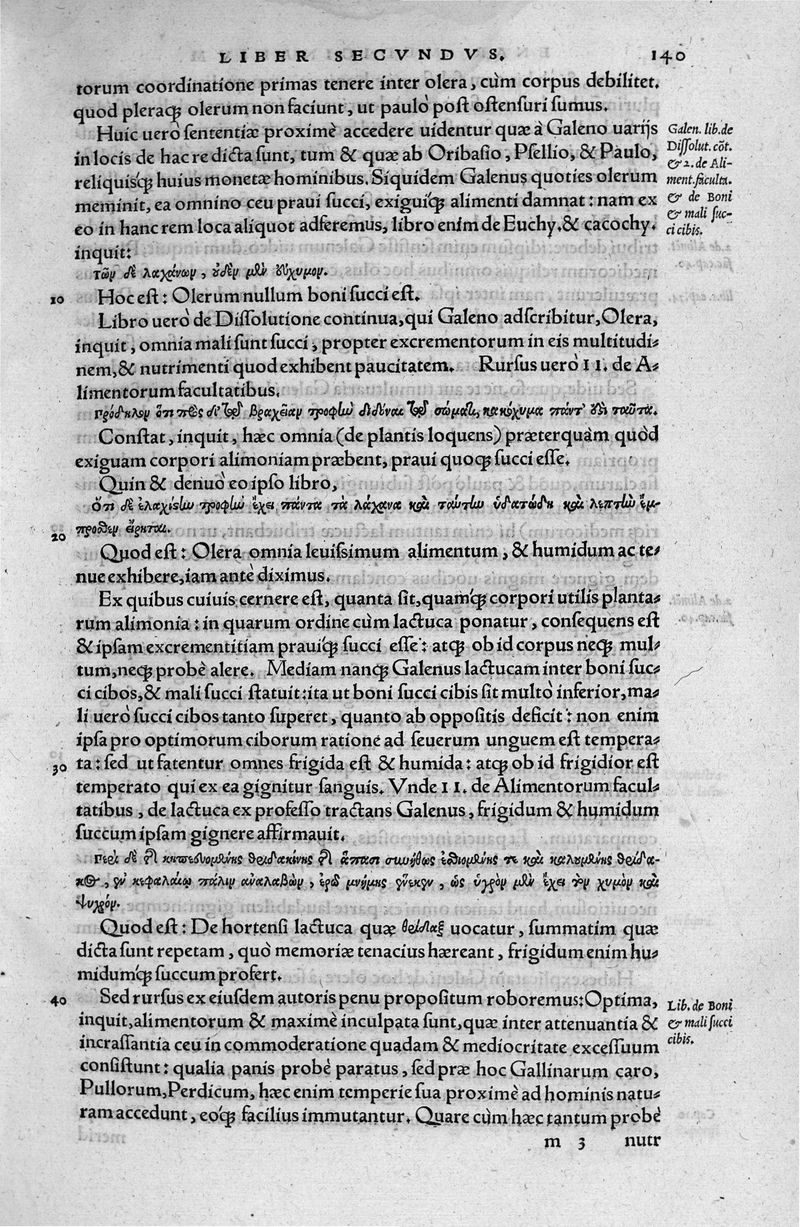 LIBER SECVNDVS. 140
torum coordinatione primas tenere inter olera, cùm corpus debilitet.
quod pleraq́; olerum non faciunt, ut paulò poſt oſtenſuri ſumus.
Huic uerò ſententiæ proximè accedere uidentur quæ à Galeno uarijs
in locis de hac re dicta ſunt, tum & quæ ab Oribaſio, Pſellio, & Paulo,
reliquisq́; huius monetæ hominibus. Siquidem Galenus quoties olerum
meminit, ea omnino ceu praui ſucci, exiguiq́; alimenti damnat: nam ex
eo in hanc rem loca aliquot adferemus, libro enim de Euchy. & cacochy.
inquit:
Galen. lib. de
Diſſolut. cõt.
& 2. de Ali-
ment. faculta.
& de Boni
& mali ſuc-
ci cibis.
τῶν δὲ λαχάνων, οὐδὲν μὲν εὔχυμον.
10 Hoc eſt: Olerum nullum boni ſucci eſt.
Libro uerò de Diſſolutione continua, qui Galeno adſcribitur, Olera,
inquit, omnia mali ſunt ſucci, propter excrementorum in eis multitudi-
nem, & nutrimenti quod exhibent paucitatem. Rurſus uerò 11. de A-
limentorum facultatibus.
πρόδηλον ὅτι πρὸς τῷ βραχεῖαν τροφὴν διδόναι τῷ σώματι, κακόχυμα πάντ' ἐστὶ ταῦτα.
Conſtat, inquit, hæc omnia (de plantis loquens) præterquàm quòd
exiguam corpori alimoniam præbent, praui quoq́; ſucci eſſe.
Quin & denuò eo ipſo libro,
ὅτι δὲ ἐλαχίστην τροφὴν ἔχει πάντα τὰ λάχανα καὶ ταύτην ὑδατώδη καὶ λεπτὴν ἔμ-
20 προσθεν εἴρηται.
Quod eſt: Olera omnia leuiſsimum alimentum, & humidum ac te-
nue exhibere, iam antè diximus.
Ex quibus cuiuis cernere eſt, quanta ſit, quamq́; corpori utilis planta-
rum alimonia: in quarum ordine cùm lactuca ponatur, conſequens eſt
& ipſam excrementitiam prauiq́; ſucci eſſe: atq́; ob id corpus neq́; mul-
tum, neq́; probè alere. Mediam nanq́; Galenus lactucam inter boni ſuc-
ci cibos, & mali ſucci ſtatuit: ita ut boni ſucci cibis ſit multò inferior, ma-
li uerò ſucci cibos tanto ſuperet, quanto ab oppoſitis deficit: non enim
ipſa pro optimorum ciborum ratione ad ſeuerum unguem eſt tempera-
30 ta: ſed ut fatentur omnes frigida eſt & humida: atq́; ob id frigidior eſt
temperato qui ex ea gignitur ſanguis. Vnde 11. de Alimentorum facul-
tatibus, de lactuca ex profeſſo tractans Galenus, frigidum & humidum
ſuccum ipſam gignere affirmauit.
περὶ δὲ τῆς κηπευομένης θριδακίνης τῆς ἅπασι συνήθως ἐσθιομένης τε καὶ καλουμένης θρίδα-
κος, ἐν κεφαλαίῳ πάλιν ἀναλαβὼν, ἐρῶ μνήμης ἕνεκεν, ὡς ὑγρὸν μὲν ἔχει τὸν χυμὸν καὶ
ψυχρόν.
Quod eſt: De hortenſi lactuca quæ θρίδαξ uocatur, ſummatim quæ
dicta ſunt repetam, quò memoriæ tenacius hæreant, frigidum enim hu-
midumq́; ſuccum profert.
40 Sed rurſus ex eiuſdem autoris penu propoſitum roboremus: Optima,
inquit, alimentorum & maximè inculpata ſunt, quæ inter attenuantia &
incraſſantia ceu in commoderatione quadam & mediocritate exceſſuum
conſiſtunt: qualia panis probè paratus, ſed præ hoc Gallinarum caro,
Pullorum, Perdicum, hæc enim temperie ſua proximè ad hominis natu-
ram accedunt, eoq́; facilius immutantur. Quare cùm hæc tantum probè
Lib. de Boni
& mali ſucci
cibis.
m 3 nutr